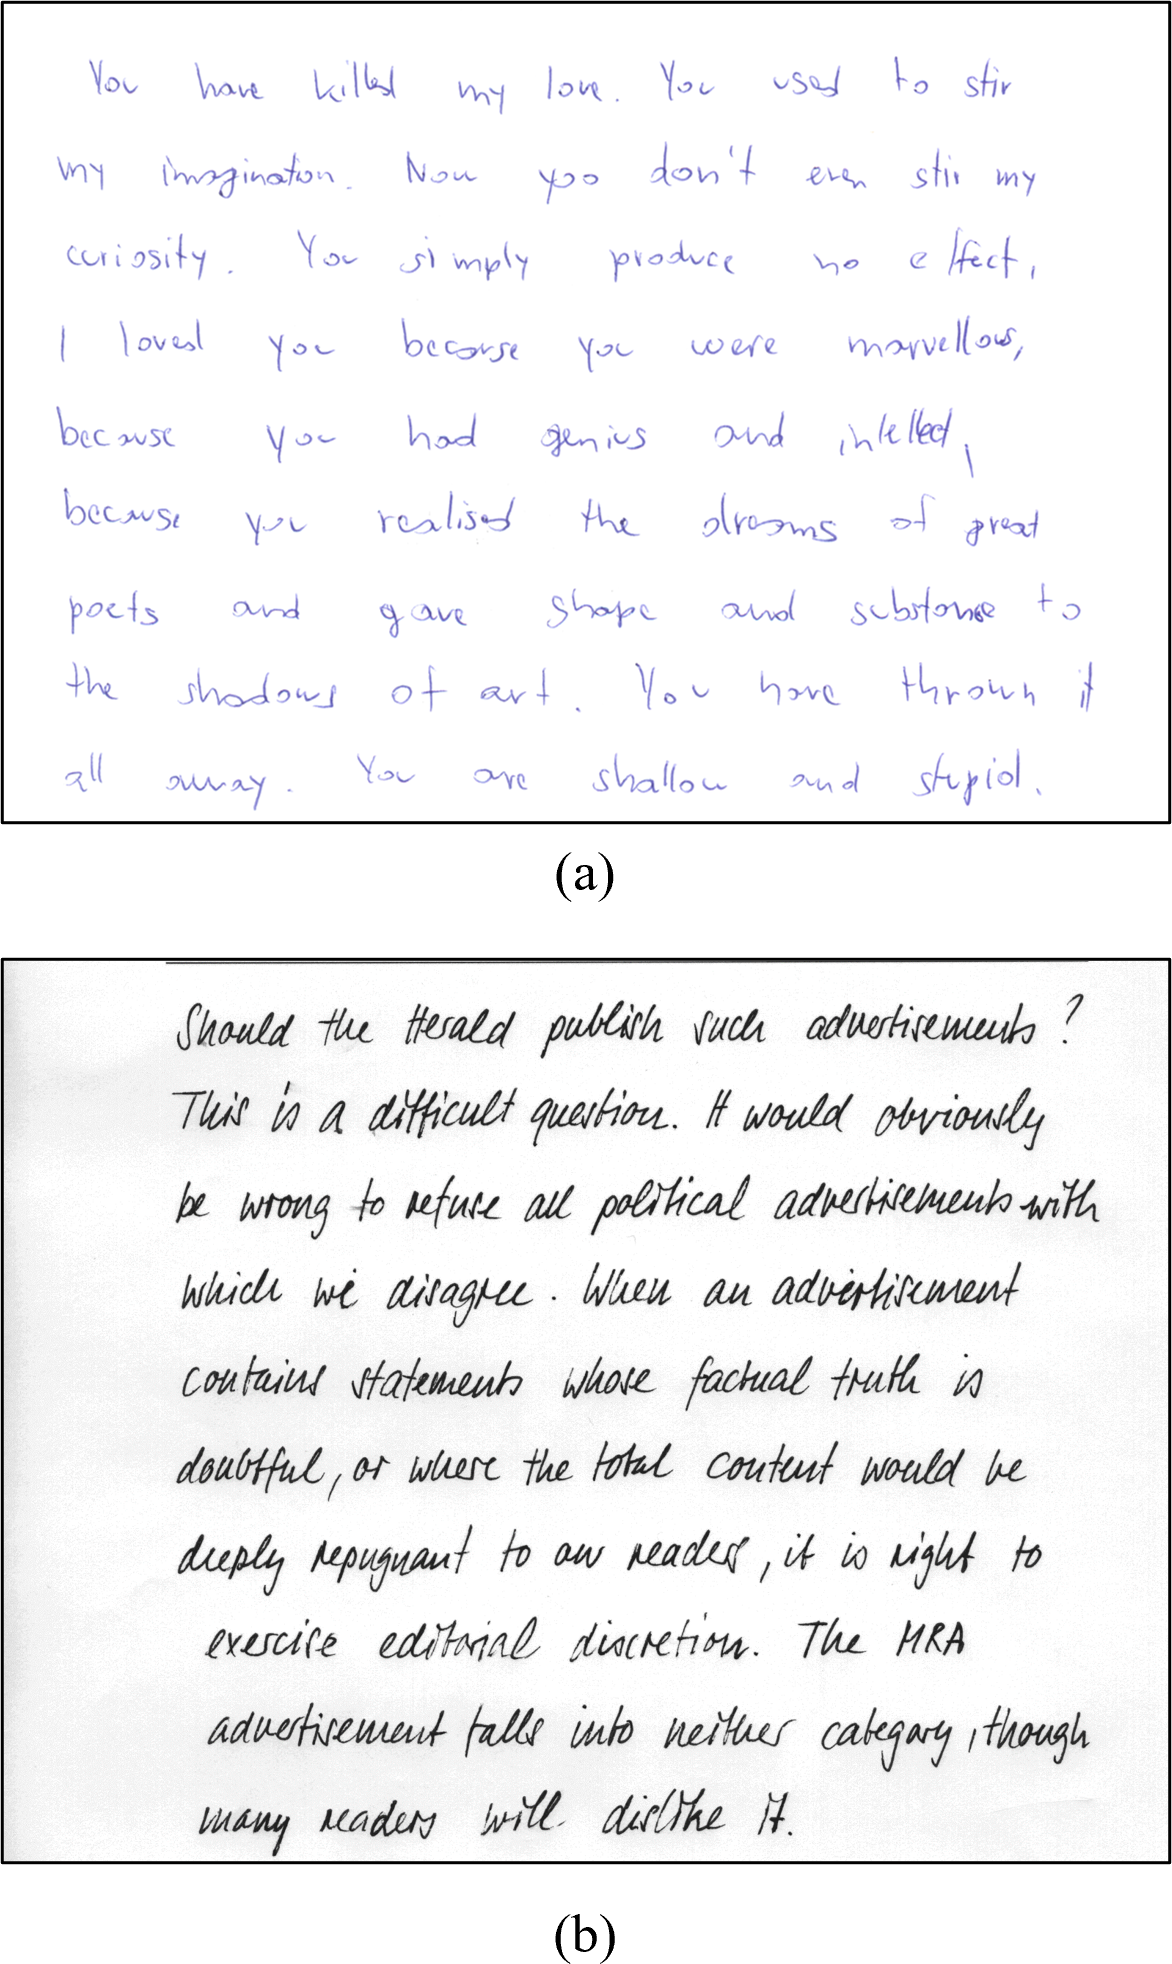 You have killed my love. You used to stir
my imagination. Now you don't even stir my
curiosity. You simply produce no effect,
I loved you because you were marvellous,
because you had genius and intellect,
because you realised the dreams of great
poets and gave shape and substance to
the shadows of art. You have thrown it
all away. You are shallow and stupid.
(a)
Should the Herald publish such advertisements?
This is a difficult question. It would obviously
be wrong to refuse all political advertisements with
which we disagree. When an advertisement
contains statements whose factual truth is
doubtful, or where the total content would be
deeply repugnant to our readers, it is right to
exercise editorial discretion. The MRA
advertisement falls into neither category, though
many readers will dislike it.
(b)